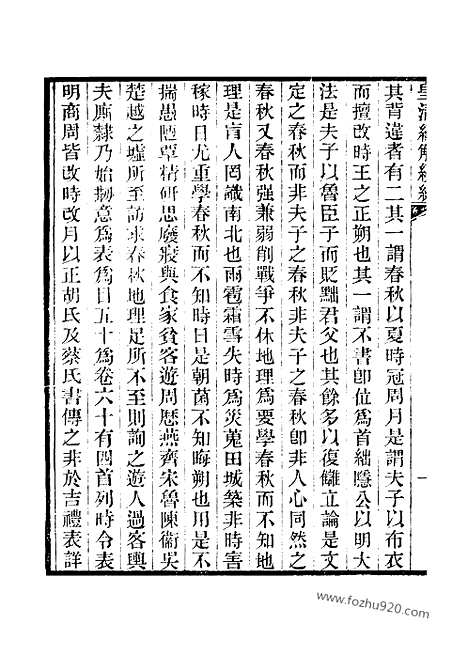 皇清經解續編
一
其背違者有二其一謂春秋以夏時冠周月是謂夫子以布衣
而擅改時王之正朔也其一謂不書卽位為首絀隱公以明大
法是夫子以魯臣子而貶黜君父也其餘多以復讎立論是文
定之春秋而非夫子之春秋非夫子之春秋卽非人心同然之
春秋又春秋强兼弱削戰爭不休地理為要學春秋而不知地
理是盲人罔識南北也雨雹霜雪失時為災蒐田城築非時害
稼時日尤重學春秋而不知時日是朝菌不知晦朔也用是不
揣愚陋覃精研思廢寢與食家貧客遊周歷燕齊宋魯陳衞吳
楚越之墟所至訪求春秋地理足所不至則詢之遊人過客輿
夫廝隸乃始剏意為表為目五十為卷六十有四首列時令表
明商周皆改時改月以正胡氏及蔡氏書傳之非於吉禮表詳
www.fozhu920.com